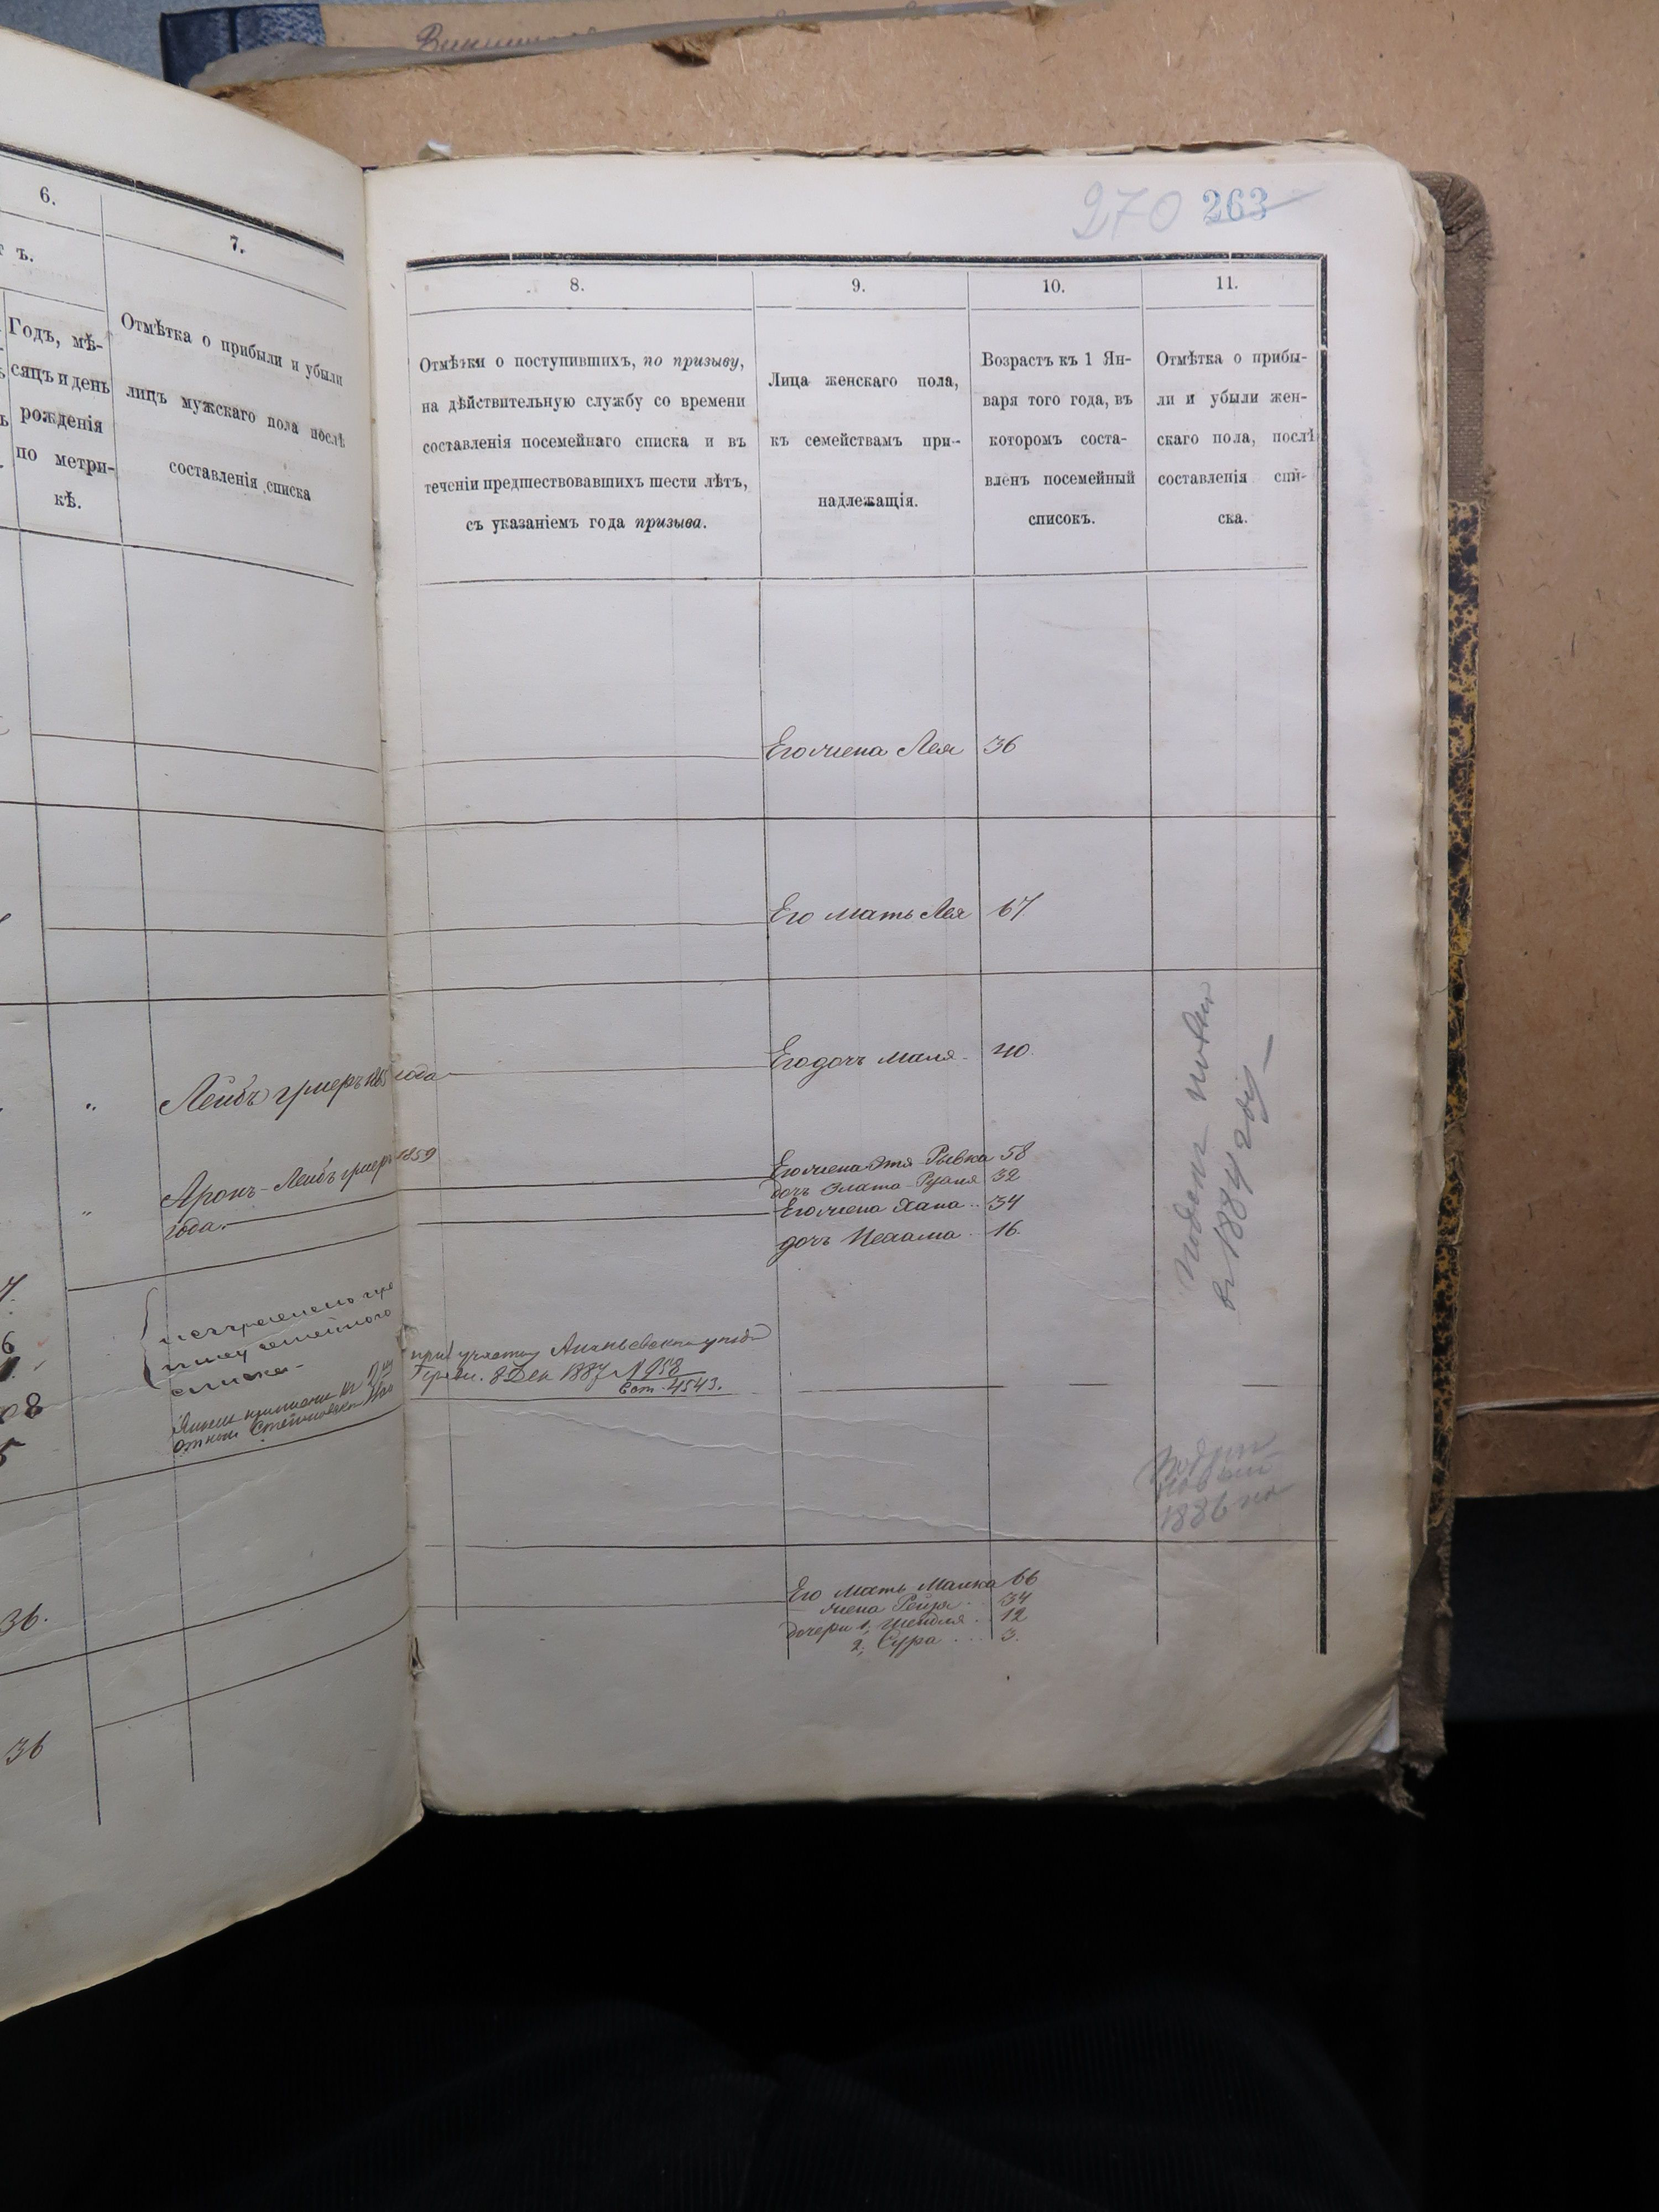 270 263
6.
7.
тъ.
Годъ, мѣ-
сяцъ и день
рожденія
по метри-
кѣ.
Отмѣтка о прибыли и убыли
лицъ мужскаго пола послѣ
составленія списка
Лейбъ умеръ 1865 года
Аронъ-Лейбъ умеръ 1859
года.
списка
36.
36
8.
9.
10.
11.
Отмѣтки о поступившихъ, по призыву,
на дѣйствительную службу со времени
составленія посемейнаго списка и въ
теченіи предшествовавшихъ шести лѣтъ,
съ указаніемъ года призыва.
Лица женскаго пола,
къ семействамъ при-
надлежащія.
Возрастъ къ 1 Ян-
варя того года, въ
которомъ соста-
вленъ посемейный
списокъ.
Отмѣтка о прибы-
ли и убыли жен-
скаго пола, послѣ
составленія спи-
ска.
Его жена Лея 36
Его мать Лея 67.
Его дочь Маля 40.
Его жена Этя-Рывка 58
дочь Злата 32
Его жена Хана 34
дочь Нехама 16.
8 Дек 1887 № 958
4543.
въ 1884 году
1886
Его мать Малка 66
жена Рейзя 34
дочери 1, Шейндля 12
2, Сура 3.